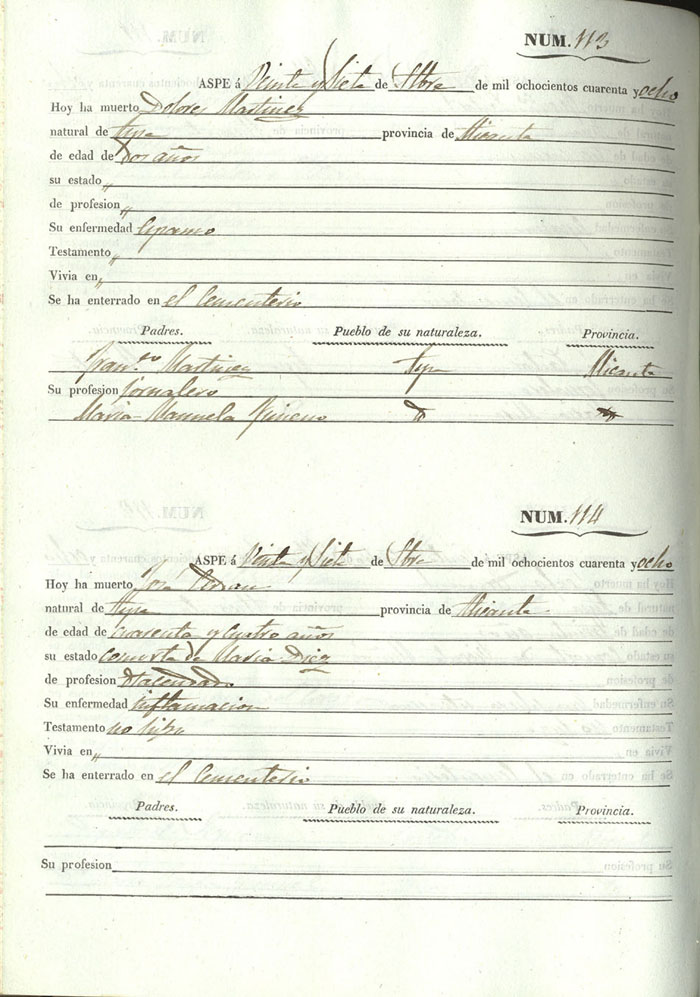 NUM. 113
ASPE á Veinte y Siete de Stbre de mil ochocientos cuarenta y ocho
Hoy ha muerto Dolores Martinez
natural de Aspe provincia de Alicante
de edad de Dos años
su estado "
de profesion "
Su enfermedad
Testamento "
Vivia en "
Se ha enterrado en el Cementerio
Padres. Pueblo de su naturaleza. Provincia.
Fran.co Martinez Aspe Alicante
Su profesion Jornalero
Maria Manuela
NUM. 114
ASPE á Veinte y Siete de Stbre de mil ochocientos cuarenta y ocho
Hoy ha muerto José
natural de Aspe provincia de Alicante
de edad de cuarenta y cuatro años
su estado consorte de Maria Diez
de profesion
Su enfermedad inflamacion
Testamento no hizo
Vivia en "
Se ha enterrado en el Cementerio
Padres. Pueblo de su naturaleza. Provincia.
Su profesion